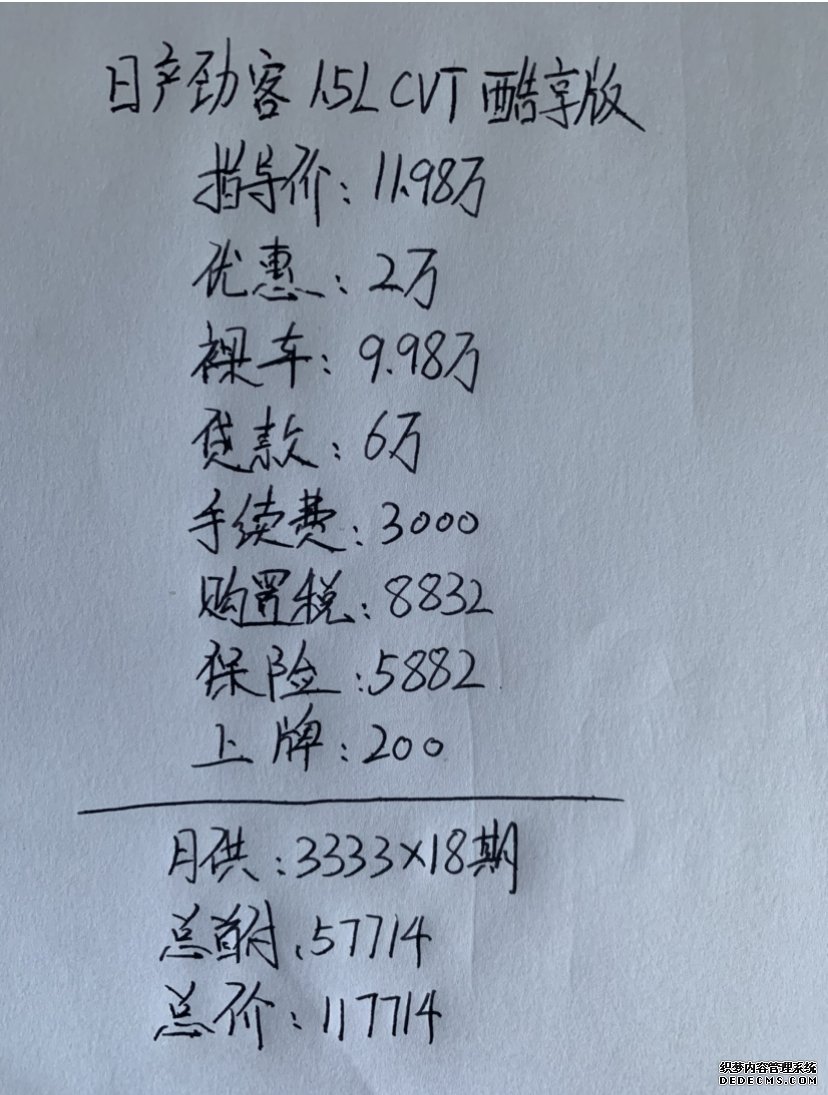 日产劲客 1.5L CVT 酷享版
指导价：11.98万
优惠：2万
裸车：9.98万
贷款：6万
手续费：3000
购置税：8832
保险：5882
上牌：200
月供：3333×18期
总首付：57714
总价：117714
织梦内容管理系统
DEDECMS.COM